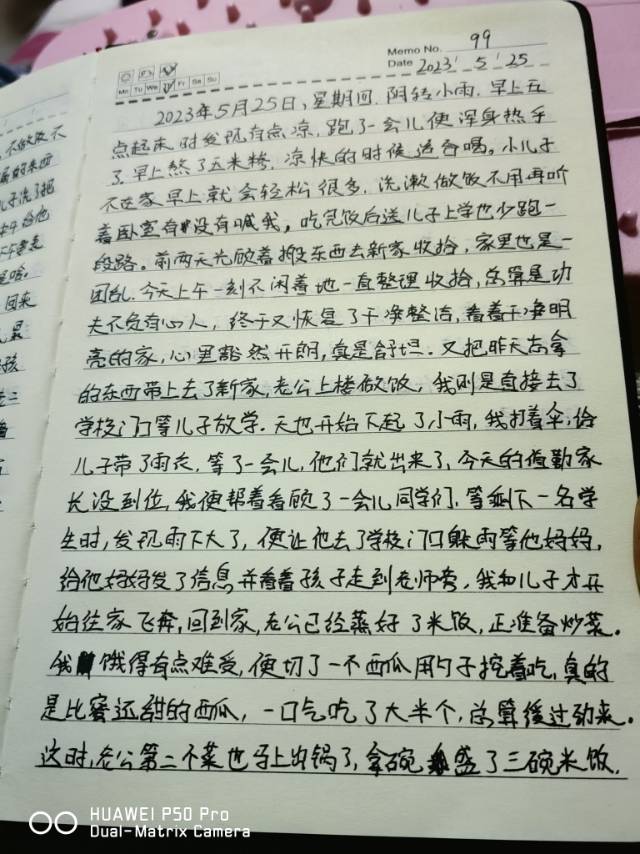 Memo No. 99
Mn Tu We Fr Sa Su
Date 2023 5 25
2023年5月25日,星期四.阴转小雨.早上五
点起来.时发现有点凉,跑了一会儿便浑身热乎
了.早上熬了玉米糁.凉快的时候适合喝。小儿子
不在家早上就会轻松很多,洗漱做饭不用再听
着卧室有没有喊我。吃完饭后送儿子上学也少跑一
段路。前两天光顾着搬东西去新家收拾,家里也是一
团乱.今天上午一刻不闲着地一直整理收拾,总算是功
夫不负有心人,终于又恢复了干净整洁,看着干净明
亮的家,心里豁然开朗,真是舒坦.又把昨天去拿
的东西带上去了新家,老公上楼做饭,我则是直接去了
学校门口等儿子放学.天也开始下起了小雨,我打着伞,给
儿子带了雨衣,等了一会儿,他们就出来了,今天的值勤家
长没到位,我便帮着看顾了一会儿同学们.等剩下一名学
生时,发现雨下大了,便让他去了学校门口躲雨等他妈妈,
给他妈妈发了信息并看着孩子走到老师旁,我和儿子才开
始往家飞奔,回到家,老公已经蒸好了米饭,正准备炒菜。
我饿得有点难受,便切了一个西瓜用勺子挖着吃,真的
是比赛还甜的西瓜,一口气吃了大半个,总算缓过劲来。
这时,老公第二个菜也马上出锅了,拿碗盛了三碗米饭,
不做
回来
孩
HUAWEI P50 Pro
Dual-Matrix Camera